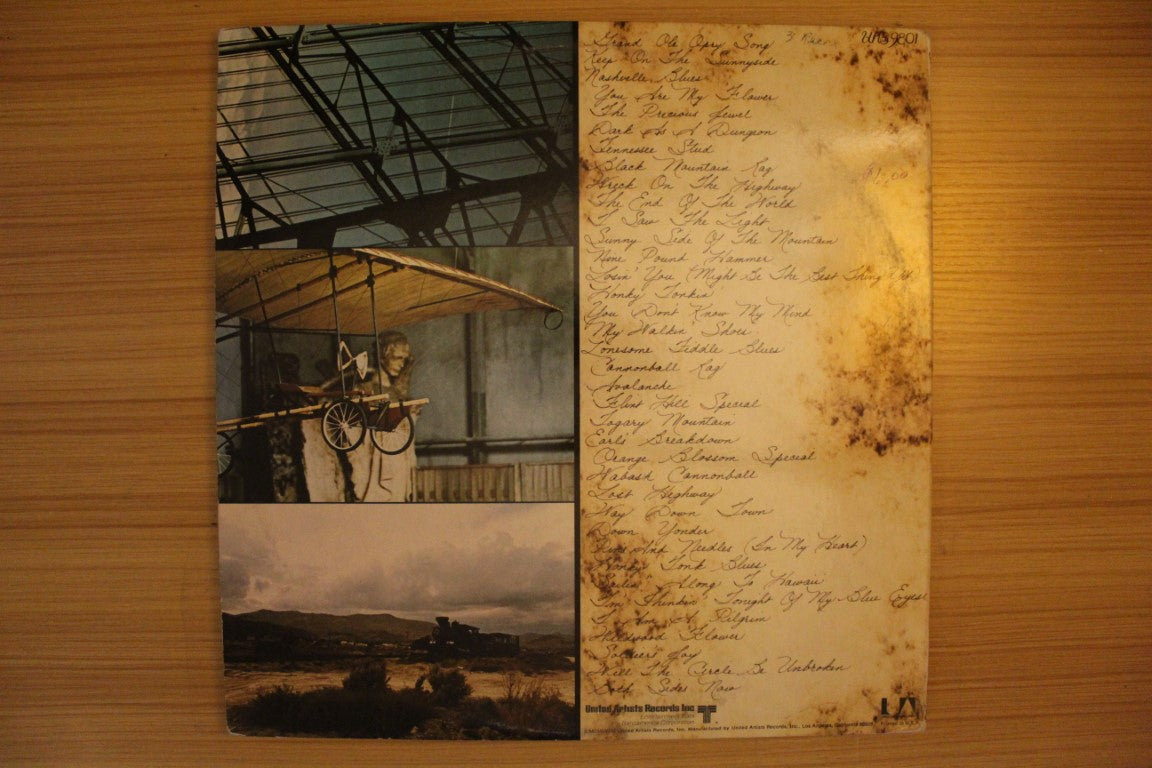 3 Rec
UAS 9801
Grand Ole Opry Song
Keep On The Sunnyside
Nashville Blues
You Are My Flower
The Precious Jewel
Dark As A Dungeon
Tennessee Stud
Black Mountain Rag
$7.00
Wreck On The Highway
The End Of The World
I Saw The Light
Sunny Side Of The Mountain
Nine Pound Hammer
Losin' You (Might Be The Best Thing Yet
Honky Tonkin'
You Don't Know My Mind
My Walkin' Shoes
Lonesome Fiddle Blues
Cannonball Rag
Avalanche
Flint Hill Special
Togary Mountain
Earl's Breakdown
Orange Blossom Special
Wabash Cannonball
Lost Highway
Way Down Town
Down Yonder
Pins And Needles (In My Heart)
Honky Tonk Blues
Sailin' Along To Hawaii
I'm Thinkin' Tonight Of My Blue Eyes
I Am A Pilgrim
Wildwood Flower
Soldier's Joy
Will The Circle Be Unbroken
Both Sides Now
United Artists Records Inc
Entertainment from
Transamerica Corporation
United Artists Records, Inc. Manufactured by United Artists Records, Inc., Los Angeles, California
UA